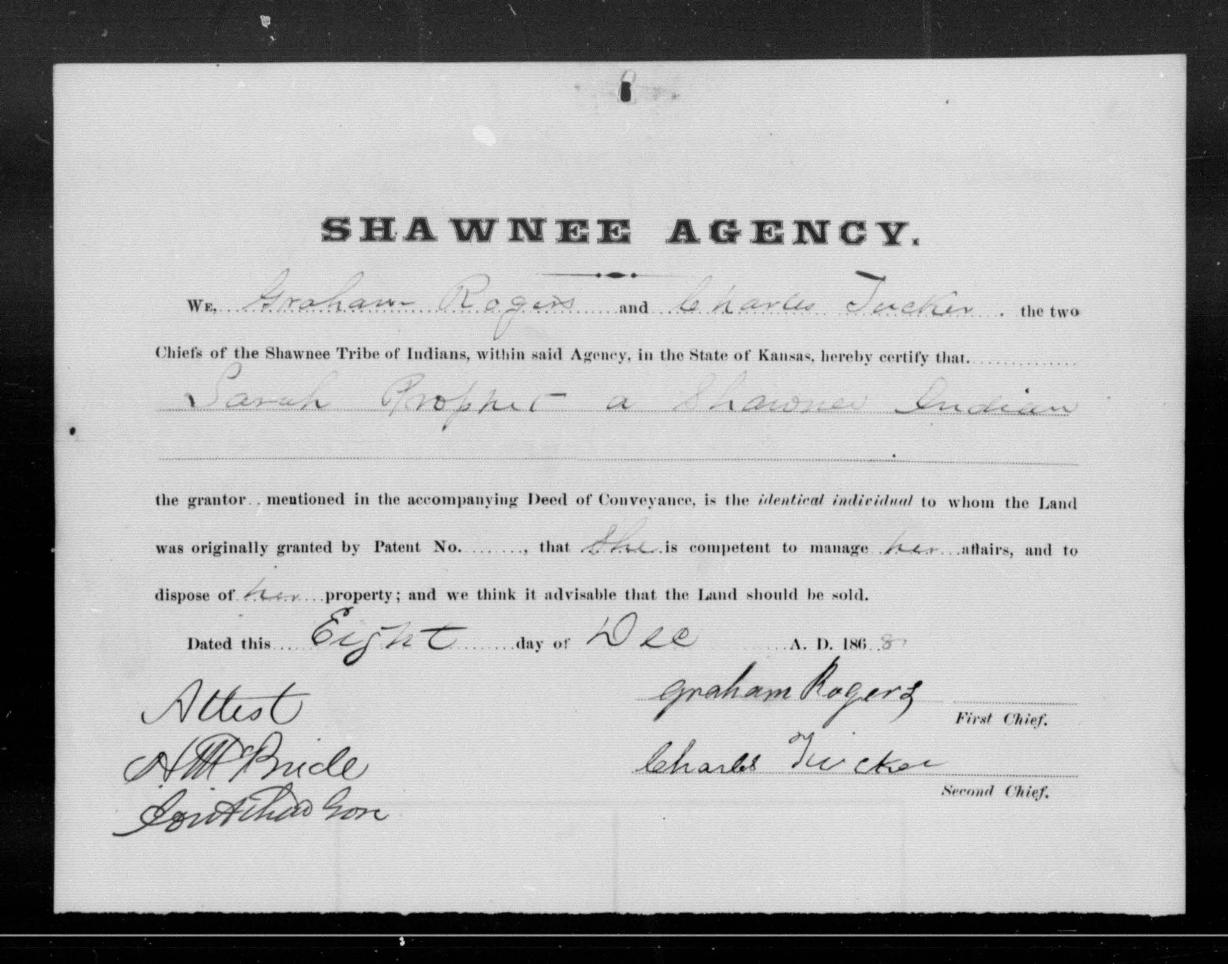 SHAWNEE AGENCY.
WE, Graham Rogers and Charles Tucker. the two
Chiefs of the Shawnee Tribe of Indians, within said Agency, in the State of Kansas, hereby certify that
Sarah Prophet a Shawnee Indian
the grantor mentioned in the accompanying Deed of Conveyance, is the identical individual to whom the Land
was originally granted by Patent No. , that She is competent to manage her affairs, and to
dispose of her property; and we think it advisable that the Land should be sold.
Dated this Eight day of Dec A. D. 1868
Attest
graham Rogers
First Chief.
H McBride
Charles Tucker
Second Chief.